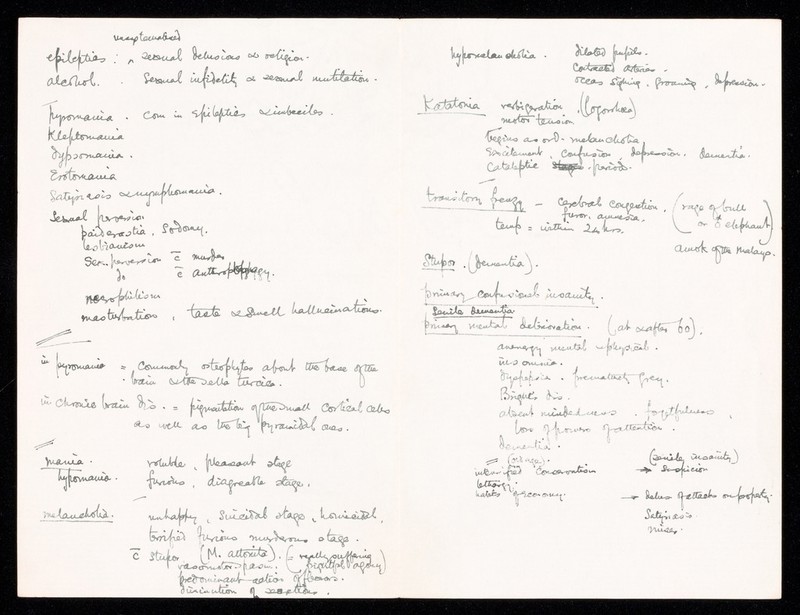 unsystematised
epileptics : ^ sexual delusions & religion.
alcohol. . Sexual infidelity & sexual mutilation.
Pyromania . Com in Epileptics & imbeciles.
Kleptomania
Dypsomania.
Erotomania
Satyriasis & nymphomania.
Sexual perversion
paiderastia, Sodomy.
lesbianism
Sex. perversion c̄ murder
Do c̄ anthropophagy.
necrophilism
masturbation, taste & smell hallucinations.
in pyromania = Commonly osteophytes about the base of the
brain & the sella turcica.
in chronic brain dis. = pigmentation of the small cortical cells
as well as the big pyramidal ones.
mania. voluble, pleasant stage
hypomania. furious, disagreable stage.
melancholia. unhappy, Suicidal stage, homicidal,
terrified furious murderous stage.
c̄ Stupor (M. attonita). (= really suffering
vasomotor spasm. frightful agony)
predominant action of flexors.
diminution of secretions.
hypomelancholia. dilated pupils.
Contracted arteries.
occas sighing, groaning, depression.
Katatonia verbigeration (logorrhoea)
motor tension.
begins as ord. melancholia
Excitement, confusion, depression. dementia.
Cataleptic stage periods.
transitory frenzy – cerebral congestion. (rage of bull
furor, amnesia. or ♂ elephant)
temp = within 24 hrs.
amok of the Malays.
Stupor. (Dementia).
primary confusional insanity.
Senile dementia
primary mental deterioration. (at & after 60).
anenergy mental & physical.
insomnia.
dyspepsia. prematurely grey.
Bright's dis.
absent mindedness. forgetfulness,
loss of powers of attention.
dementia.
= (old age). (senile insanity)
intensified conservatism → Suspicion
lethargy
habits of economy. → Delus of attacks on property.
Satyriasis.
miser.